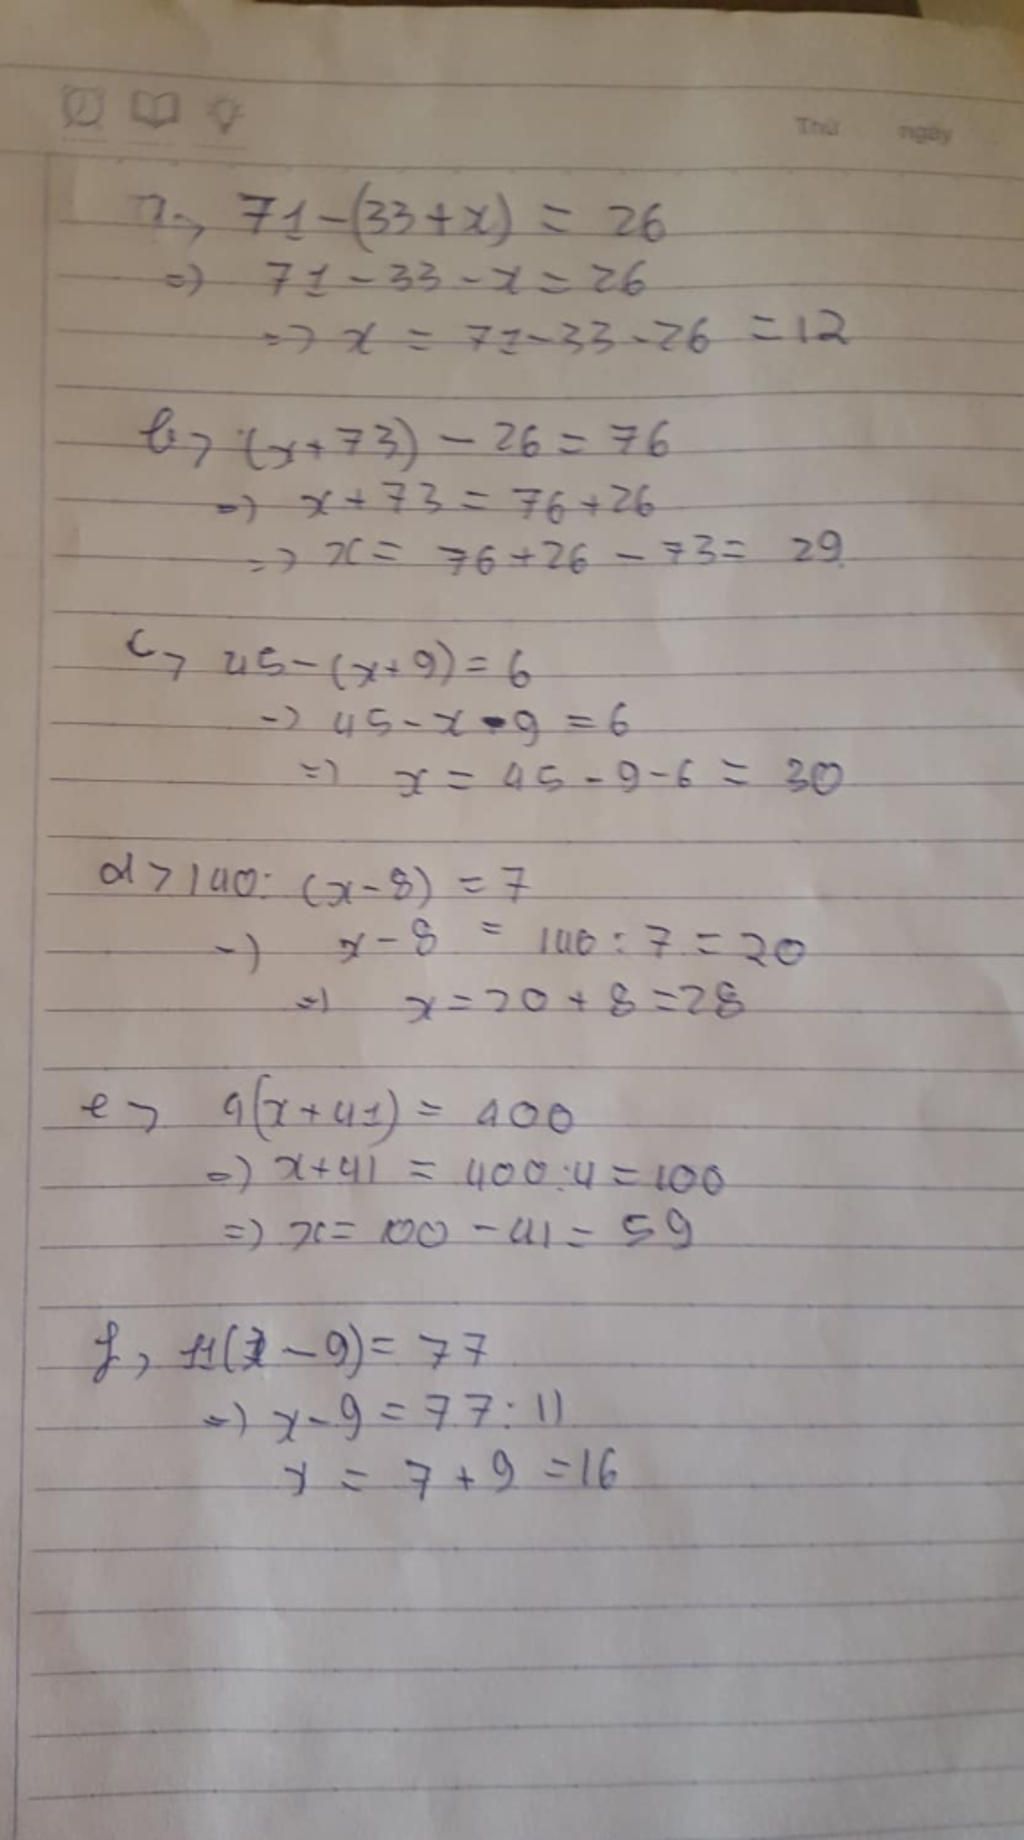 Thứ ngày
a, 71-(33+x) = 26
=) 71-33-x=26
=> x = 71-33-26 =12
b> (x+73) - 26 = 76
=) x+73 = 76+26
=> x= 76+26 - 73= 29
c> 45-(x+9)=6
-> 45-x-9 =6
=) x= 45-9-6 = 30
d>140: (x-8) =7
-) x-8 = 140:7=20
=) x=20+8=28
e> 4(x+41)= 400
=) x+41 = 400:4=100
=) x= 100 -41= 59
f, 11(x-9)= 77
=) x-9=77:11
x = 7+9 =16